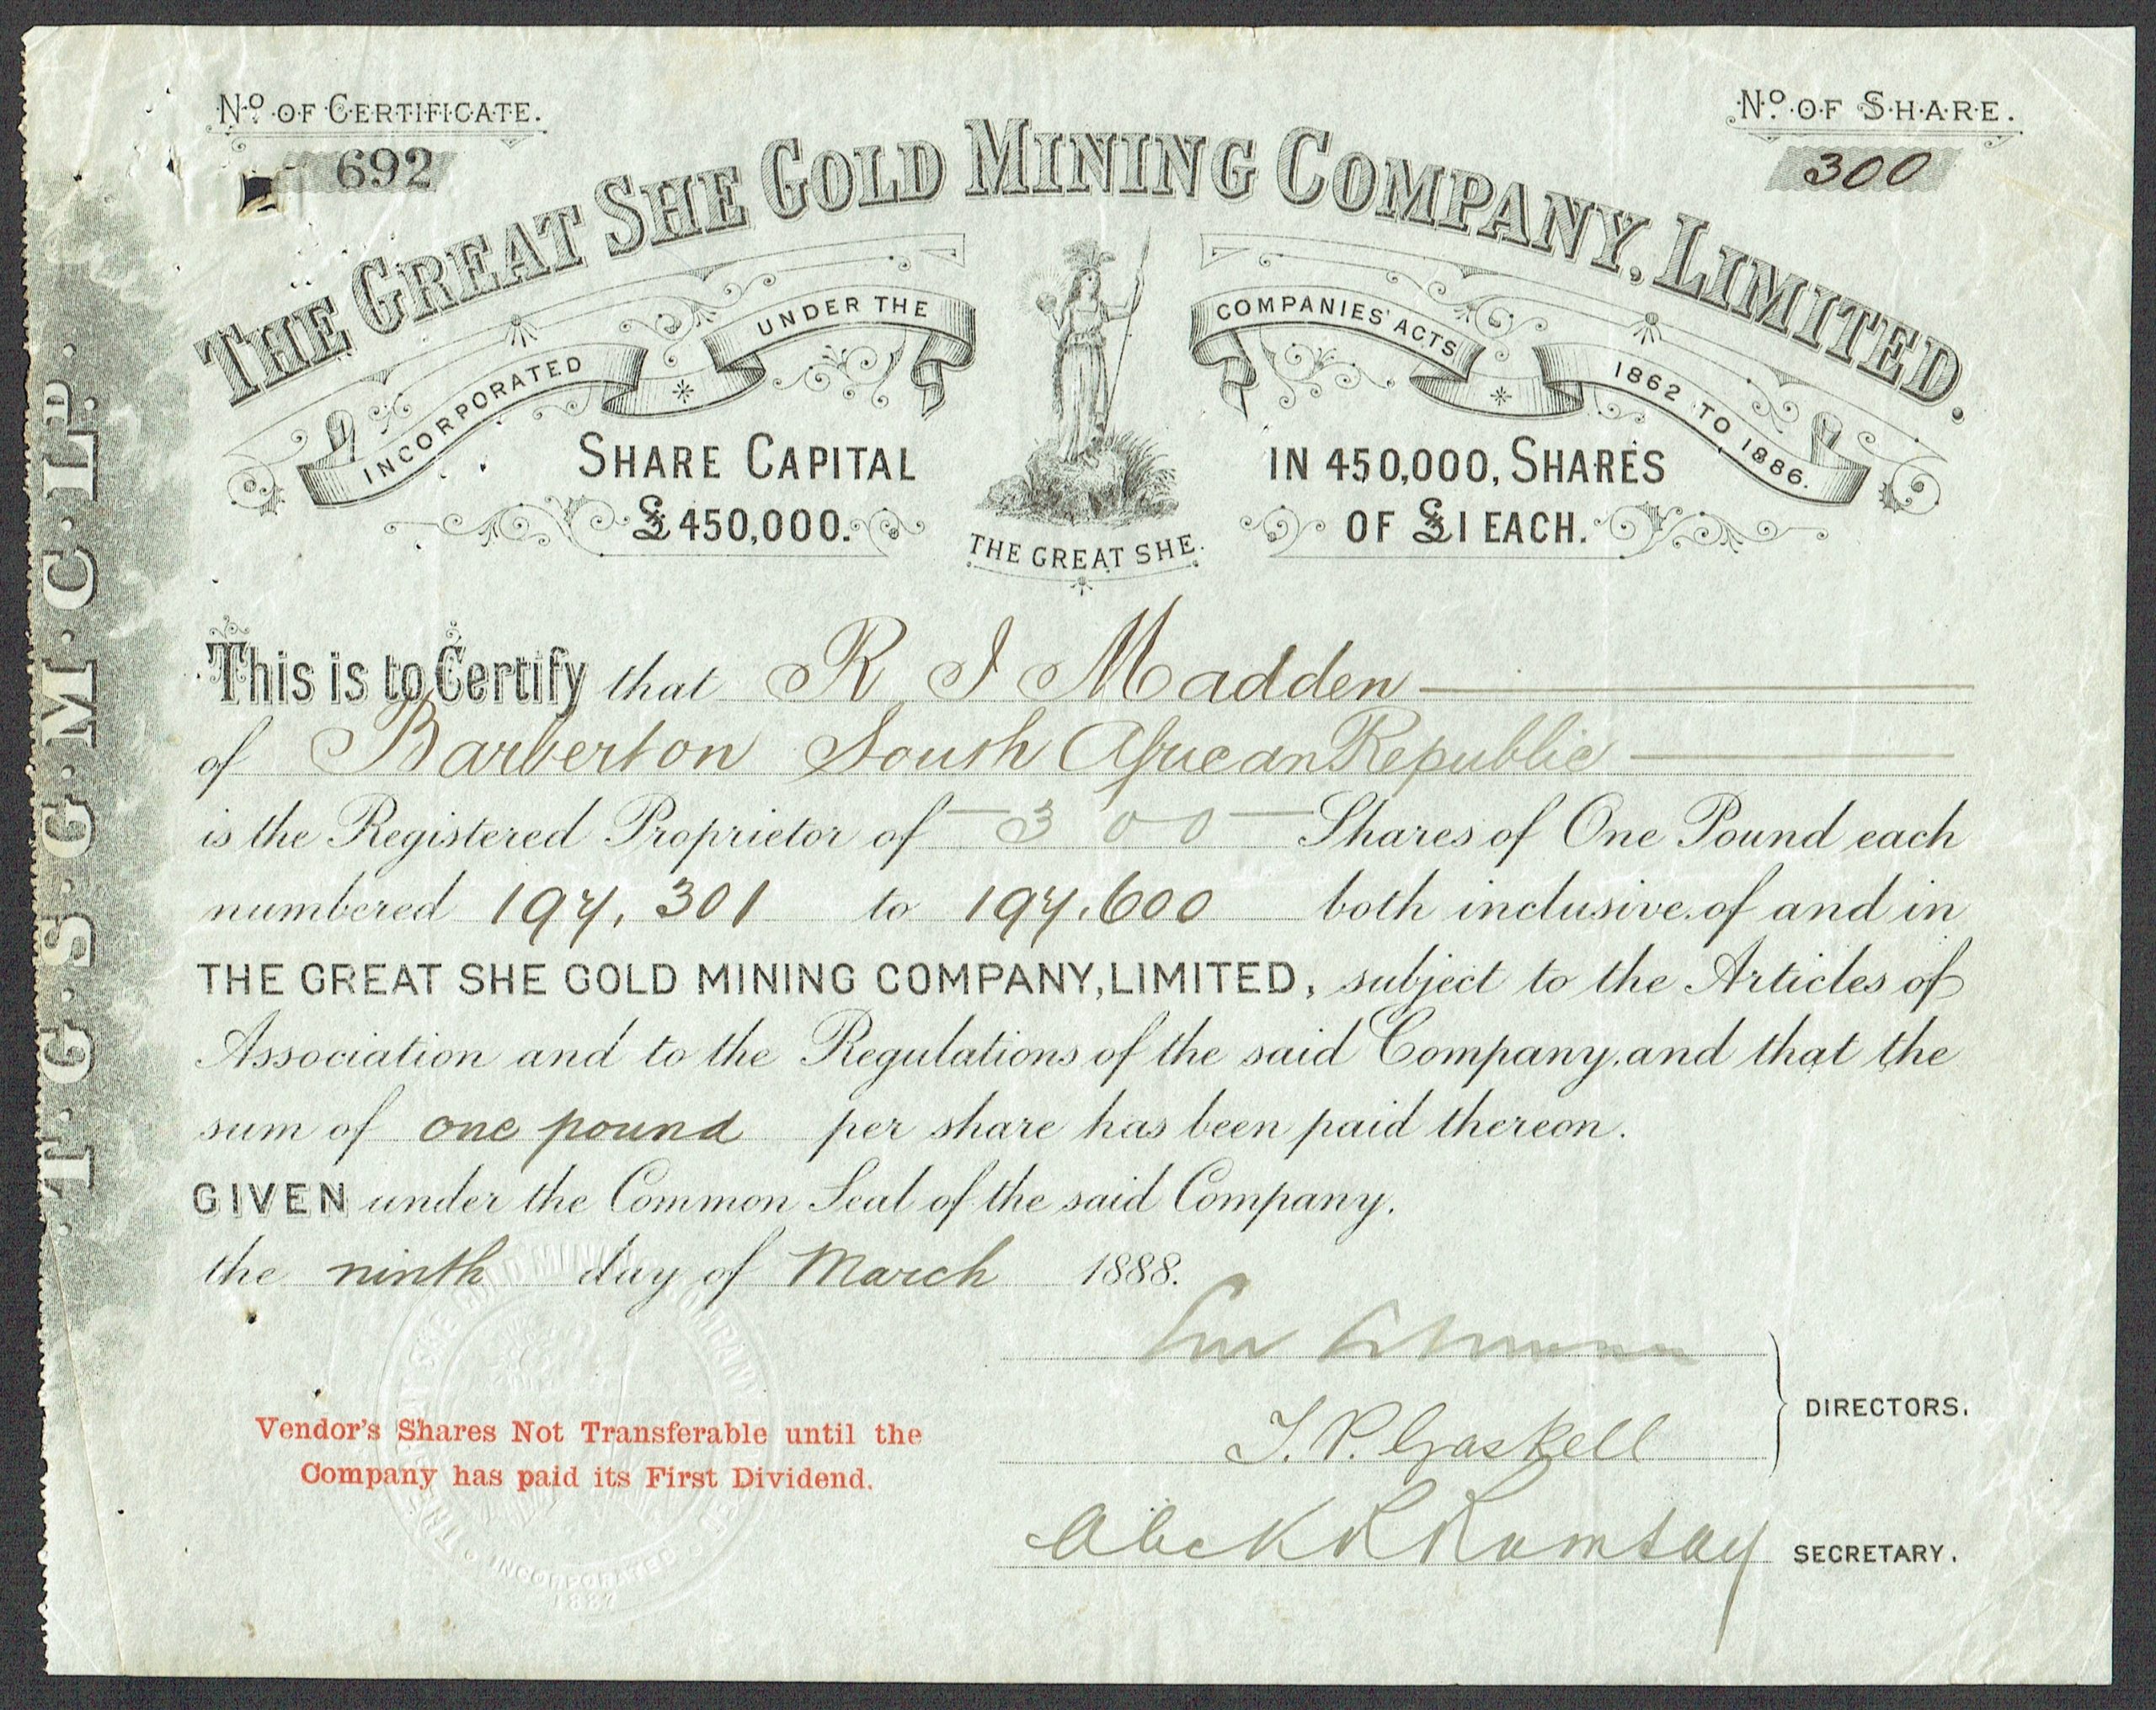 No. OF CERTIFICATE.
692
No. OF SHARE.
300
THE GREAT SHE GOLD MINING COMPANY, LIMITED.
INCORPORATED UNDER THE COMPANIES' ACTS 1862 TO 1886.
SHARE CAPITAL
£450,000.
IN 450,000, SHARES
OF £1 EACH.
THE GREAT SHE.
T.G.S.G.M.C.LD.
This is to Certify that R J Madden
of Barberton South African Republic
is the Registered Proprietor of 300 Shares of One Pound each
numbered 194,301 to 194,600 both inclusive, of and in
THE GREAT SHE GOLD MINING COMPANY, LIMITED, subject to the Articles of
Association and to the Regulations of the said Company, and that the
sum of one pound per share has been paid thereon.
GIVEN under the Common Seal of the said Company,
the ninth day of March 1888.
DIRECTORS.
T. P. Gaskell
Ramsay SECRETARY.
Vendor's Shares Not Transferable until the
Company has paid its First Dividend.
THE GREAT SHE GOLD MINING COMPANY LIMITED
INCORPORATED
1887